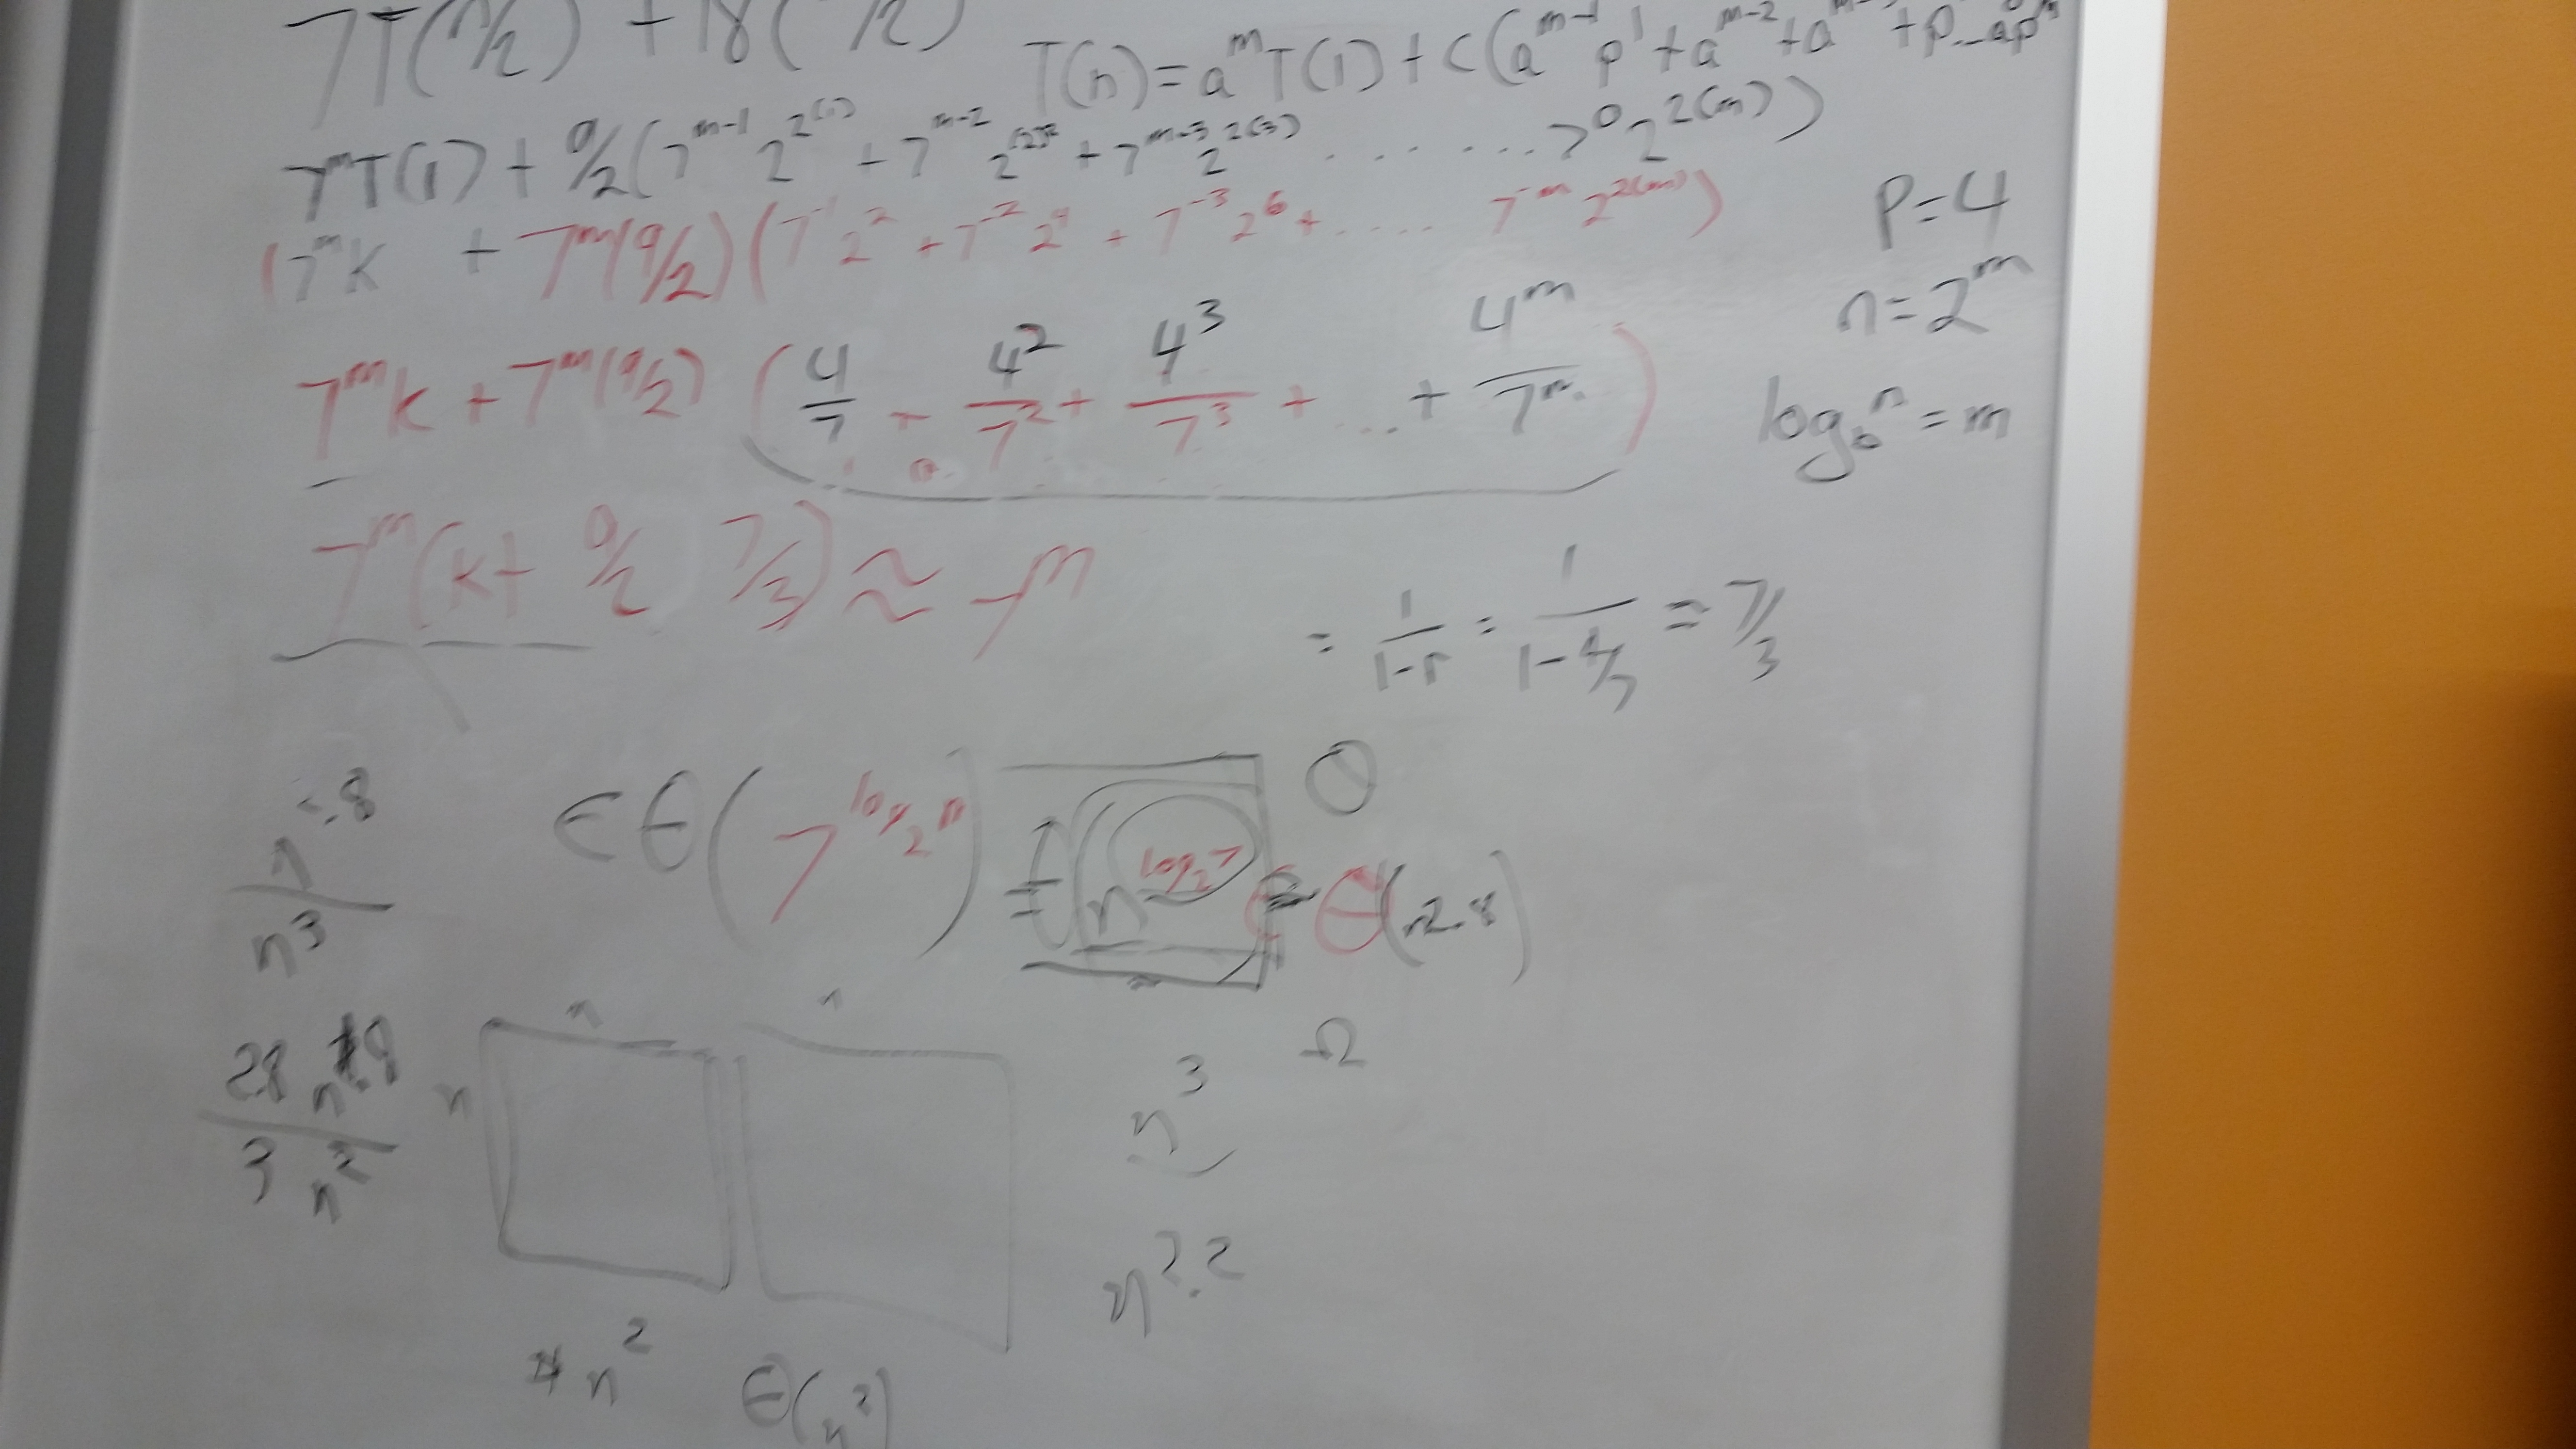 7T(n/2) + 18( /2)
T(n) = a^m T(1) + c(a^{m-1} p^1 + a^{m-2} + a^{m-} + p ... ap^m
7^m T(1) + 9/2 (7^{m-1} 2^{2(1)} + 7^{m-2} 2^{(2)2} + 7^{m-3} 2^{2(3)} ....... 7^0 2^{2(m)})
(7^m k + 7^m (9/2) (7^{-1} 2^2 + 7^{-2} 2^4 + 7^{-3} 2^6 + .... 7^{-m} 2^{2(m)})
P=4
n=2^m
7^m k + 7^m (9/2) (4/7 + 4^2/7^2 + 4^3/7^3 + ... + 4^m/7^m)
log_b n = m
7^m (k + 9/2 7/3) ≈ 7^m
= 1/(1-r) = 1/(1-4/7) = 7/3
n^{2.8}/n^3
∈ Θ(7^{log_2 n}) = n^{log_2 7} ∈ Θ(n2.8)
O
28 n^{1.8}
3 n^2
n
n
n
n^3
Ω
n^{2.2}
n^2
Θ(n^2)